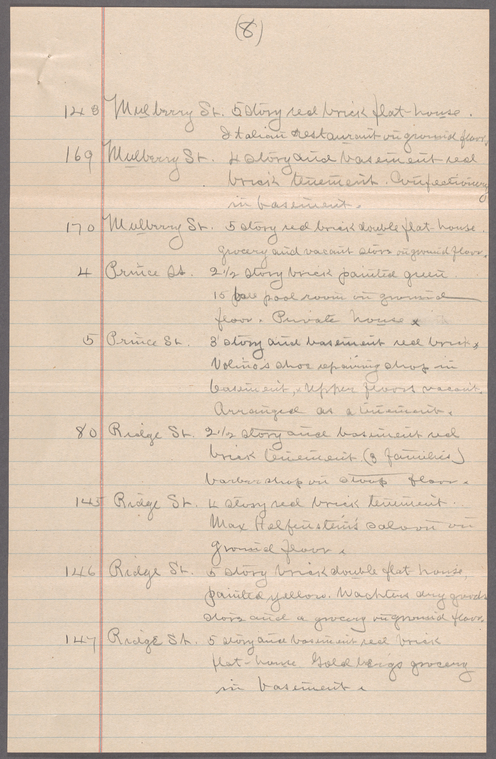 (8)
148 Mulberry St. 5 story red brick flat-house.
Italian restaurant on ground floor.
169 Mulberry St. 4 story and basement red
brick tenement. Confectionery
in basement.
170 Mulberry St. 5 story red brick double flat-house.
Grocery and vacant store on ground floor.
4 Prince St. 2 1/2 story brick painted green
15 pool room on ground
floor. Private house
5 Prince St. 3 story and basement red brick,
shoe repairing shop in
basement. Upper floors vacant.
Arranged as a tenement.
80 Ridge St. 2 1/2 story and basement red
brick tenement (3 families)
barber shop on stoop floor.
145 Ridge St. 4 story red brick tenement.
Max Helfenstein's saloon on
ground floor.
146 Ridge St. 5 story brick double flat-house,
painted yellow. dry goods
store and a grocery on ground floor.
147 Ridge St. 5 story and basement red brick
flat-house Goldberg's grocery
in basement.